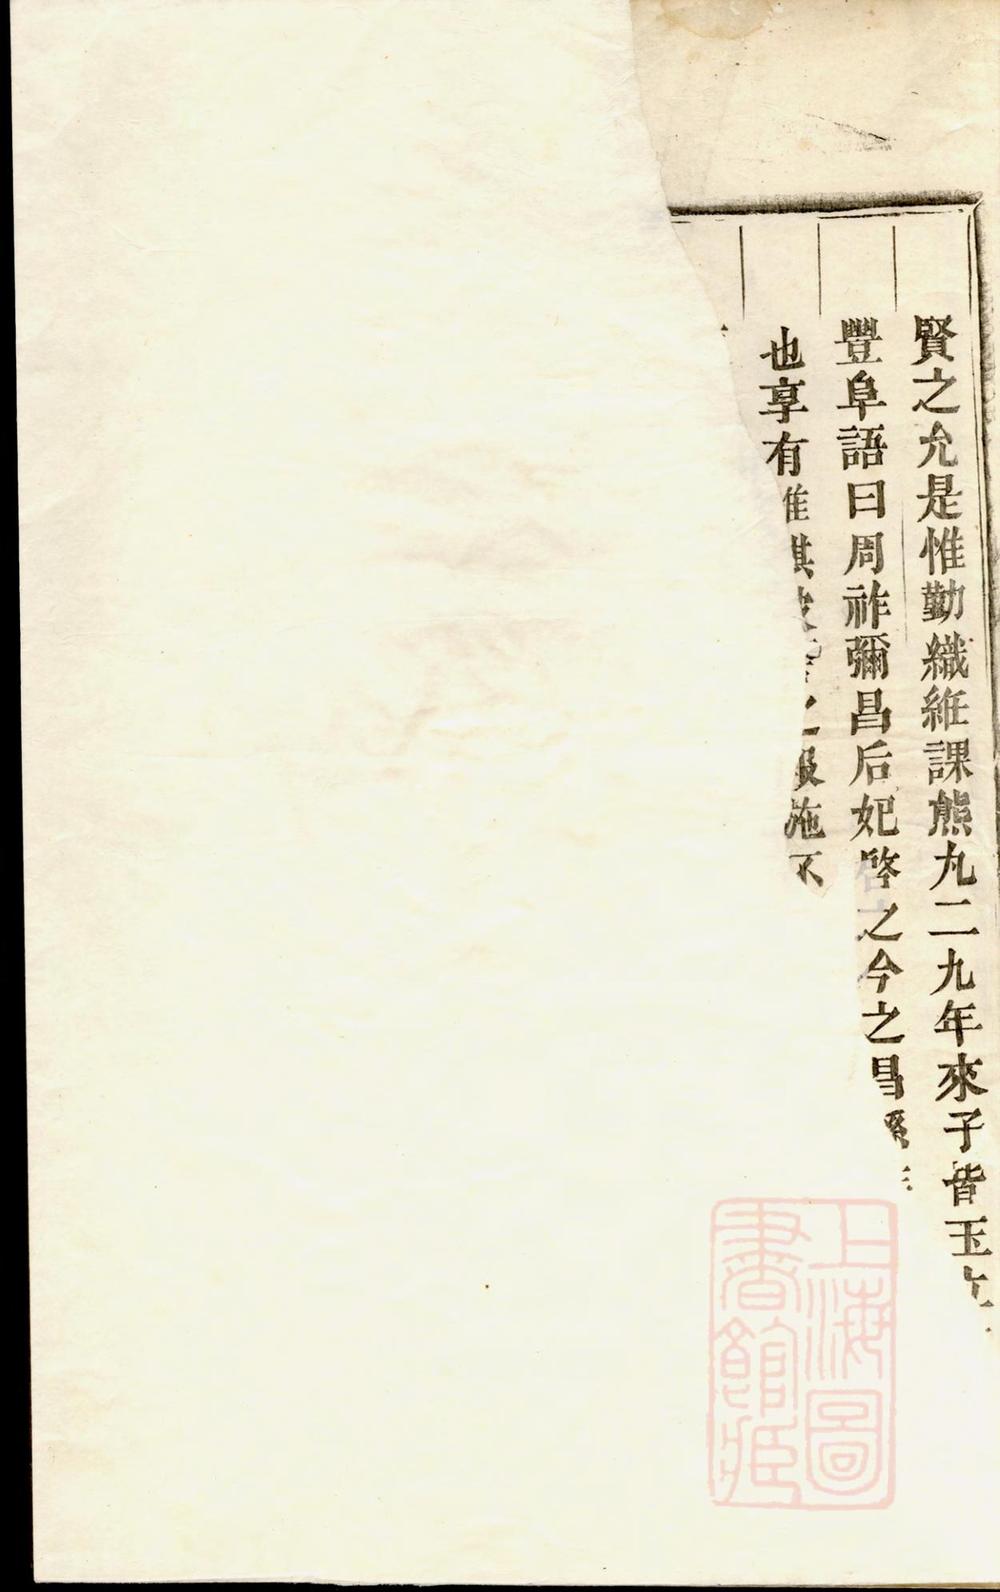 賢之允是惟勤織維課熊丸二九年來子皆玉
豐阜語曰周祚彌昌后妃啓之今之昌
也享有
施不
上海圖書館藏